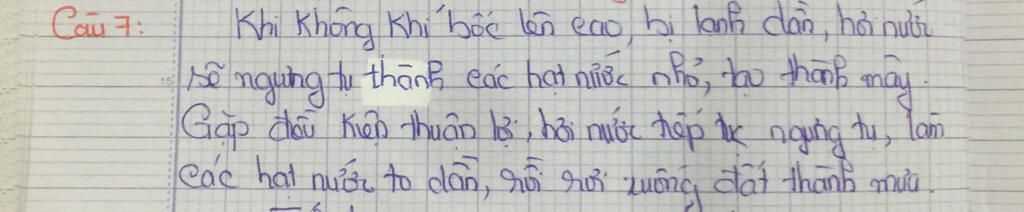 Câu 7: Khi không khí bốc lên cao, bị lạnh dần, hơi nước
sẽ ngưng tụ thành các hạt nước nhỏ, tạo thành mây.
Gặp điều kiện thuận lợi, hơi nước tiếp tục ngưng tụ, làm
các hạt nước to dần, rồi rơi xuống đất thành mưa.